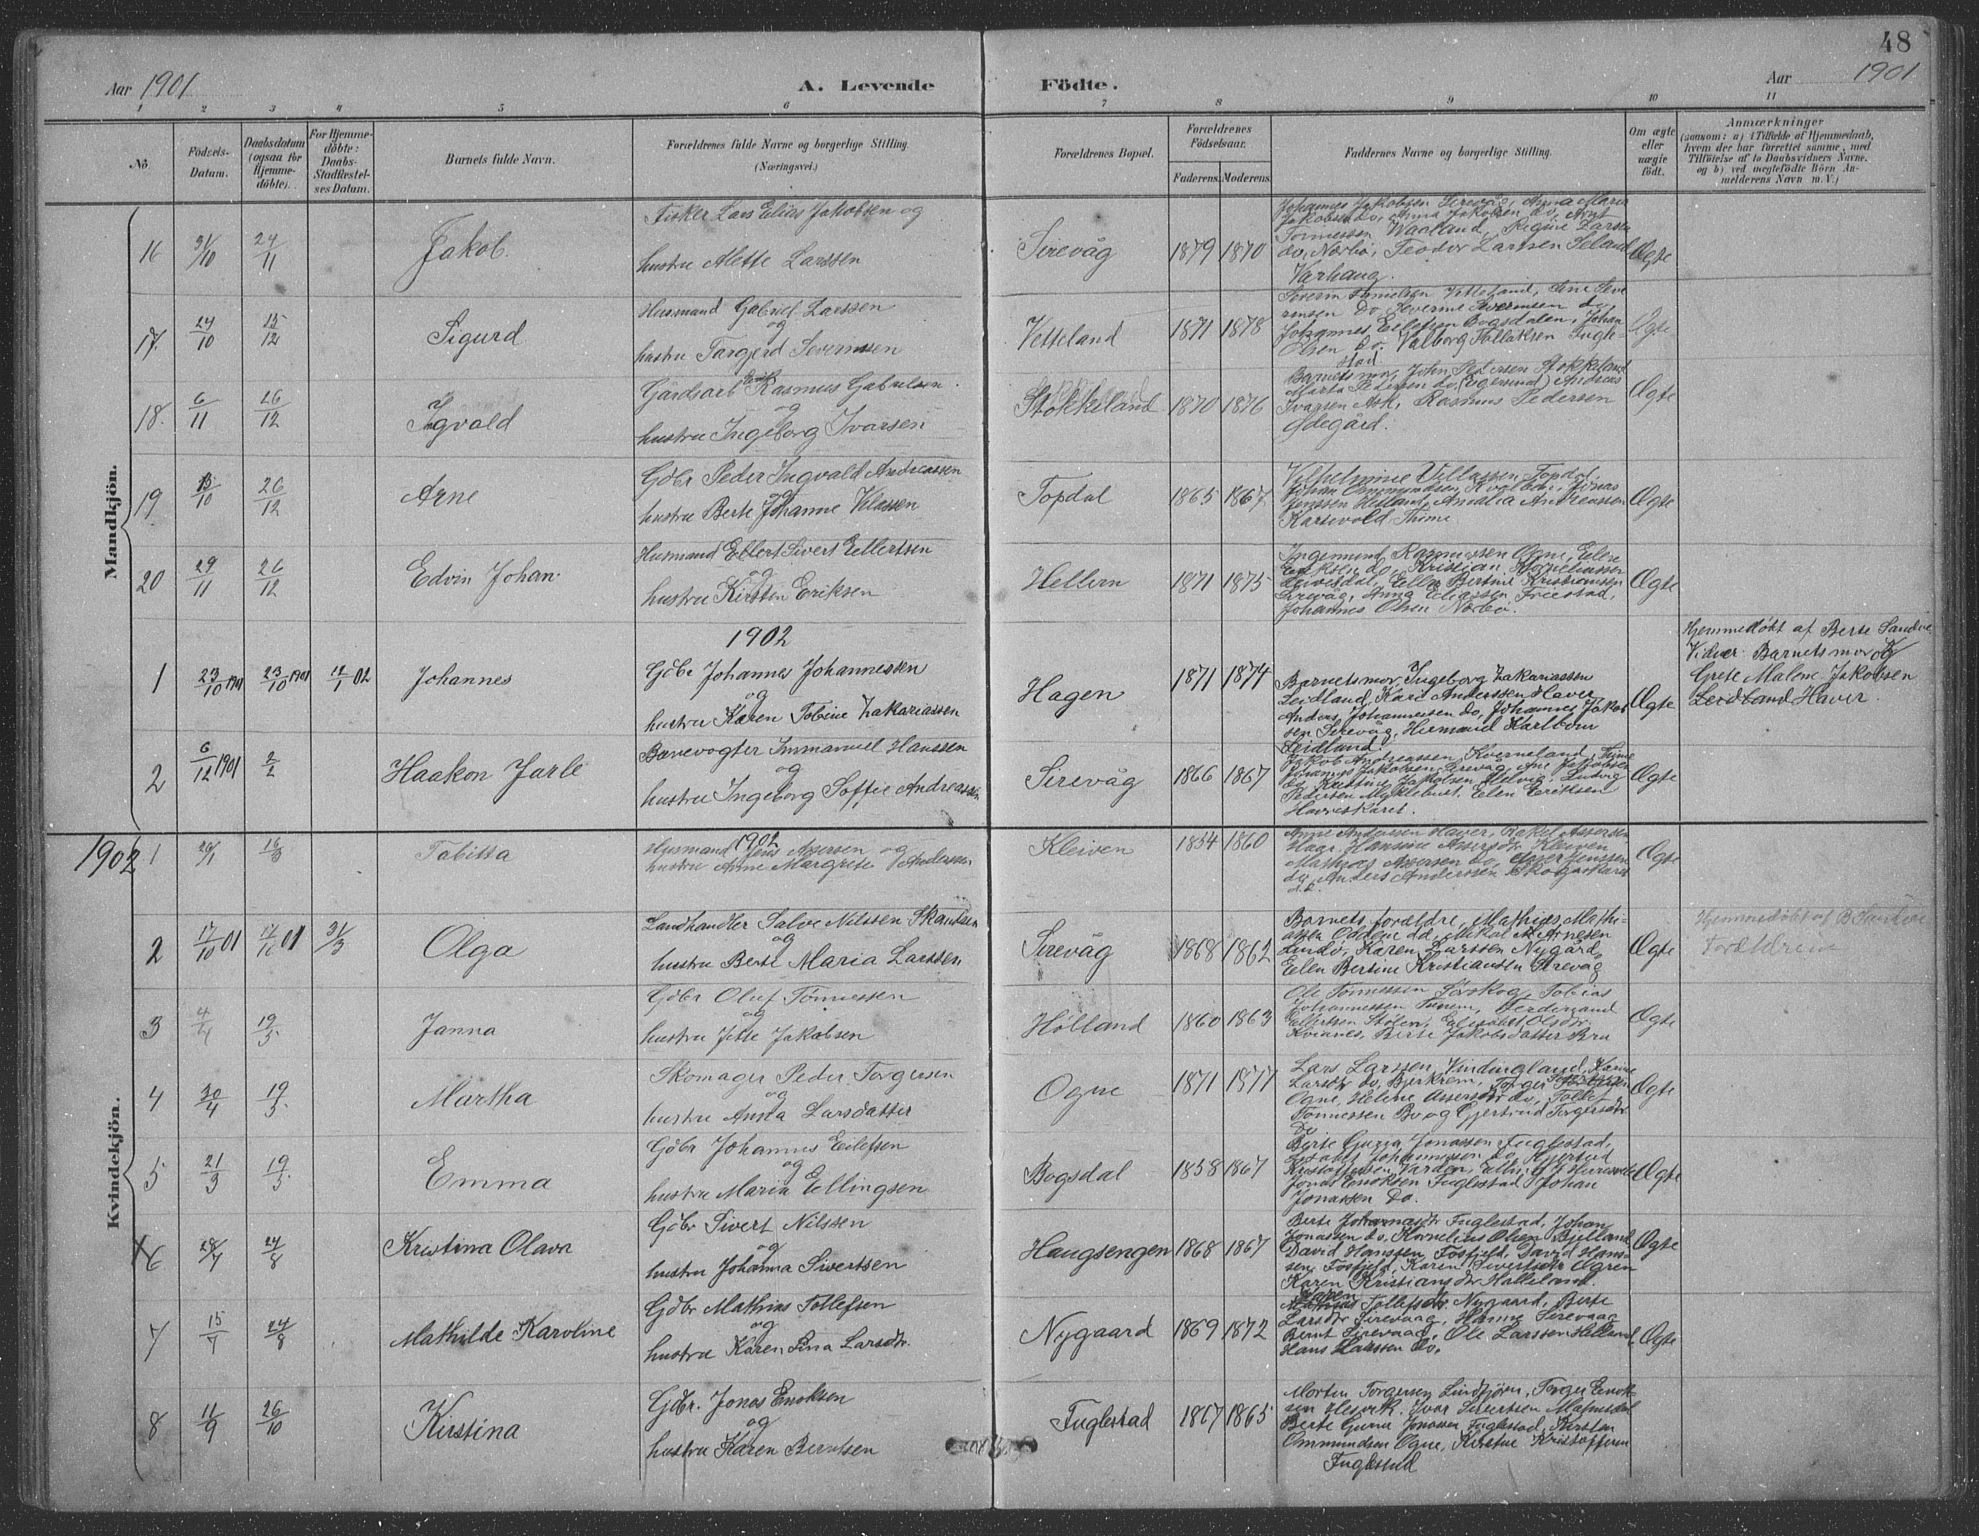 48
Aar 1901
A. Levende
Födte.
Aar 1901
1 2 3 4 5 6 7 8 9 10 11
No.
Födsels-Datum.
Daabsdatum (ogsaa for Hjemme-döbte).
For Hjemme-döbte: Daabs-Stadfæstel-ses Datum.
Barnets fulde Navn.
Forældrenes fulde Navne og borgerlige Stilling. (Næringsvei.)
Forældrenes Bopæl.
Forældrenes Födselsaar.
Faderens. Moderens.
Faddernes Navne og borgerlige Stilling.
Om ægte eller uægte födt.
Anmærkninger
(saasom: a) i Tilfælde af Hjemmedaab, hvem der har forrettet samme, med Tilföielse af to Daabsvidners Navne, og b) ved uægtefödte Börn An-melderens Navn m. V.)
Mandkjön.
16 31/10 24/11 Jakob. Fisker Lars Elias Jakobsen og
hustru Alette Larssen
Sirevåg 1879 1870
Johannes Jakobsen Sirevåg, Anna Maria
Jakobsen do, Anna Jakobsen do, Arnt
Tønnessen Waaland,
do, Nærbø, Teodor Larssen Seland
Varhaug. Ægte
17. 24/10 15/12 Sigurd Husmand Gabriel Larssen
og
hustru Targjerd Severinssen
Vetteland 1871 1878
Severin Danielsen Vetteland,
Johannes Eilefsen Bogsdalen, Johan
Olsen do. Valborg Tollaksen Fugle-
stad Ægte
18. 6/11 26/12 Ingvald Gårdsarb Rasmus Gabrielsen
og
hustru Ingeborg Ivarsen
Stokkeland 1870 1876
Barnets mor, John Pedersen Stokkeland
Marta Pedersen do, (Egersund) Andreas
Ivarsen Ask, Rasmus Pedersen
Ødegård. Ægte
19. 13/10 26/12 Arne Gdbr Peder Ingvald Andreassen
og
hustru Berte Johanne Klassen
Topdal 1865 1867
Vilhelmine Topdal
Johan Ommundsen Jonas
Jonssen Helland, Amalia Andreassen
Karsevold, Thime Ægte
20 29/11 26/12 Edvin Johan. Husmand Ellert Sivert Eellertsen
og
hustru Kirsten Eriksen
Hellern 1871 1875
Ingemund Rasmussen Ogne, Elen
Eriksen do, Kristian Kornelinssen
Ellen Bertine Kristianssen
Sirevåg, Anna Eliassen Friestad,
Johannes Olsen Nærbø. Ægte
1902
1 23/10 1901 23/10 1901 12/1 02 Johannes Gdbr Johannes Johannessen
og
hustru Karen Tobine Zakariassen
Hagen 1871 1874
Barnets mor, Ingeborg Zakariassen
Leidland, Kari Anderssen Haver
Anders Johannessen do, Johannes Jakob
sen Sirevåg, Husmand Karl
Leidland. Ægte
Hjemmedøbt af Berte Sandve
Vidner Barnets mor og
Grete Malene Jakobsen
Leidland Haver.
2 6/12 1901 2/2 Haakon Jarle Banevogter Immanuel Hanssen
og
hustru Ingeborg Soffie Andreassen
Sirevåg 1866 1867
Jakob Andreassen, Kverneland, Time
Johannes Jakobsen Sirevåg, Ane Jakobsen
do Kristine Jakobsen Ludvig
Pedersen Myklebust, Elen Eriksen
Havreskaret. Ægte
Kvindekjön.
1902
1902
1 20/1 16/3 Tabitta Husmand Jens Assersen og
hustru Anne Margrete Anderssen
Kleiven 1854 1860
Anne Anderssen Haver, Rakel Assersen
Haar. Hansine Assersdtr Kleiven
Mathias Assersen do, Asser Jenssen
do, Anders Anderssen Skogaskaret
Ægte
2 17/10 01 01 31/3 Olga Landhandler Salve Nilssen Skandsen
og
hustru Berte Maria Larssen
Sirevåg 1868 1862
Barnets forældre, Mathias Mathi-
assen Oddene dd, Mikal M Arnesen
Lindø, Karen Larssen Nygård,
Elen Bertine Kristiansen Sirevåg Ægte
Hjemmedøbt af B Sandve
Forældrene
3 4/4 19/5. Janna Gdbr Oluf Tønnessen
og
hustru Jette Jakobsen
Hølland 1860 1863
Ole Tønnessen Sørskog, Tobias
Johannessen Ferdinand
Ellertsen Stølen, Elisabet Olsdtr
Kvianes, Berte Jakobsdatter Bru Ægte
4 30/4 19/5. Martha Skomager Peder Torgersen
og
hustru Anna Larsdatter
Ogne 1871 1877
Lars Larssen, Vindingland,
Larsdtr do, Bjerkrem, Torger
Ogne, Helene Assersdtr do, Tollef
Tønnessen Bo og Gjertrud Torgersdtr
Do Ægte
5 21/3 19/5 Emma Gdbr Johannes Eilefsen
og
hustru Maria Eellingsen
Bogsdal 1858 1867
Berte Guria Jonassen Fuglestad,
Johannessen do, Gjertrud
Kristoffersen, Varden,
Jonas Enoksen Fuglestad Johan
Jonassen Do. Ægte
6 28/4 24/8 Kristina Olava Gdbr Sivert Nilssen
og
hustru Johanna Sivertsen
Haugsengen 1868 1867
Berte Johannasdtr Fuglestad, Johan
Jonassen do, Kornelius Olsen Bjelland
David Hanssen, Fosfjeld, David Hans-
sen, Fosfjeld, Karen Sivertsdtr Ogren
Karen Kristiansdtr Halleland. Ægte
7 15/7 24/8 Mathilde Karoline Gdbr Mathias Tollefsen
og
hustru Karen Sina Larsdtr.
Nygaard 1869 1872
Karen
Tollefsdtr. Nygaard, Berte
Larsdtr Sirevaag, Hanna Sirevaag
Bernt Sirevaag, Ole Larssen Helland,
Hans Larssen do. Ægte
8 11/9 26/10 Kristina Gdbr. Jonas Enoksen
og
hustru Karen Berntsen
Fuglestad 1867 1865
Morten Torgersen Lindtjørn, Torger Enok-
sen Ivar Sivertsen
Berte Guria Jonassen Fuglestad, Kirsten
Ommundsen Ogne, Kirstine Kristoffersen
Fuglestad